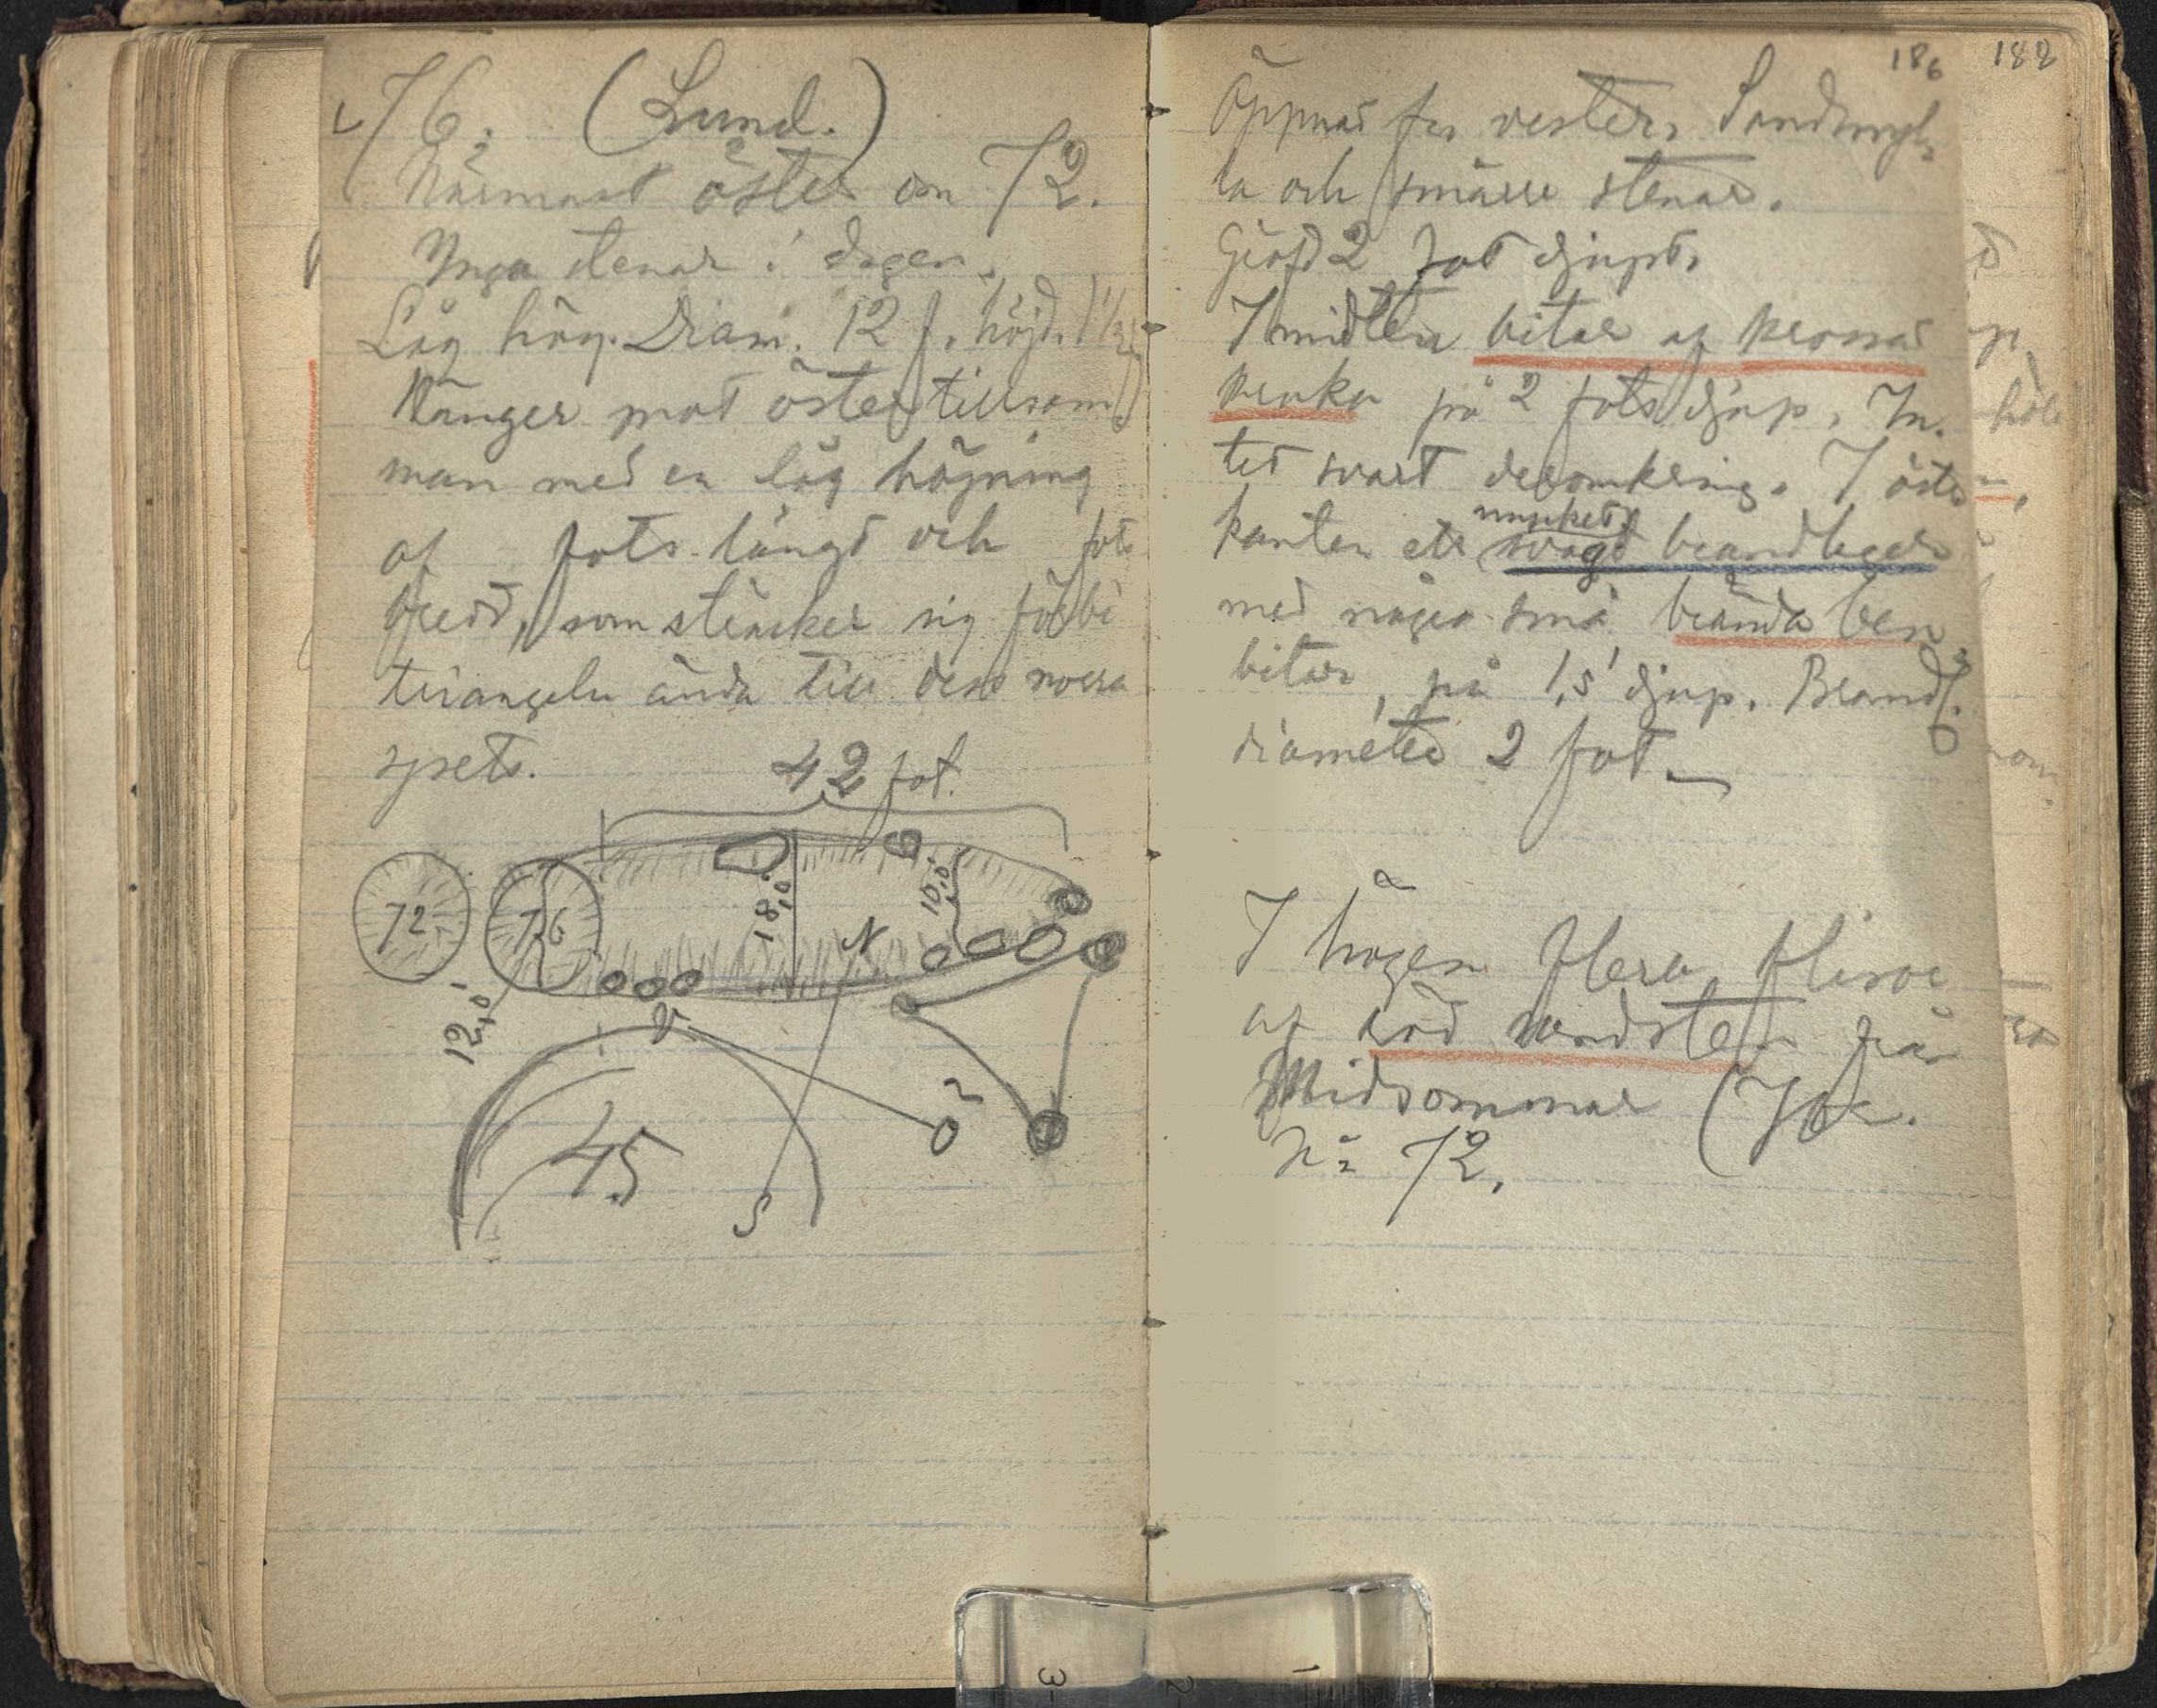 76. (Lund.)
Närmast öster om 72.
Inga stenar i dagen.
Låg hög. Diam. 12 f., höjd. 1 1/2
Hänger mot öster tillsam
man med en låg höjning
af fots längd och fots
bredd, som sträcker sig förbi
triangeln ända till dess norra
spets.
42 fot.
72
76
18,0'
10,0'
N
12,0'
V
45
S
O
186 182
Öppnad fr. vester. Sandmyl
la och smärre stenar.
Gräfd 2 fot djupt.
I midten bitar af krossad
kruka på 2 fots djup. In-
tet svart deromkring. I östra
kanten ett mycket
svagt brandlager
med några små brända ben
bitar, på 1,5' djup. Brandl.
diameter 2 fot.
I högen flera flisor
af röd sandsten från
Midsommar (Jfr.
Nº 72.